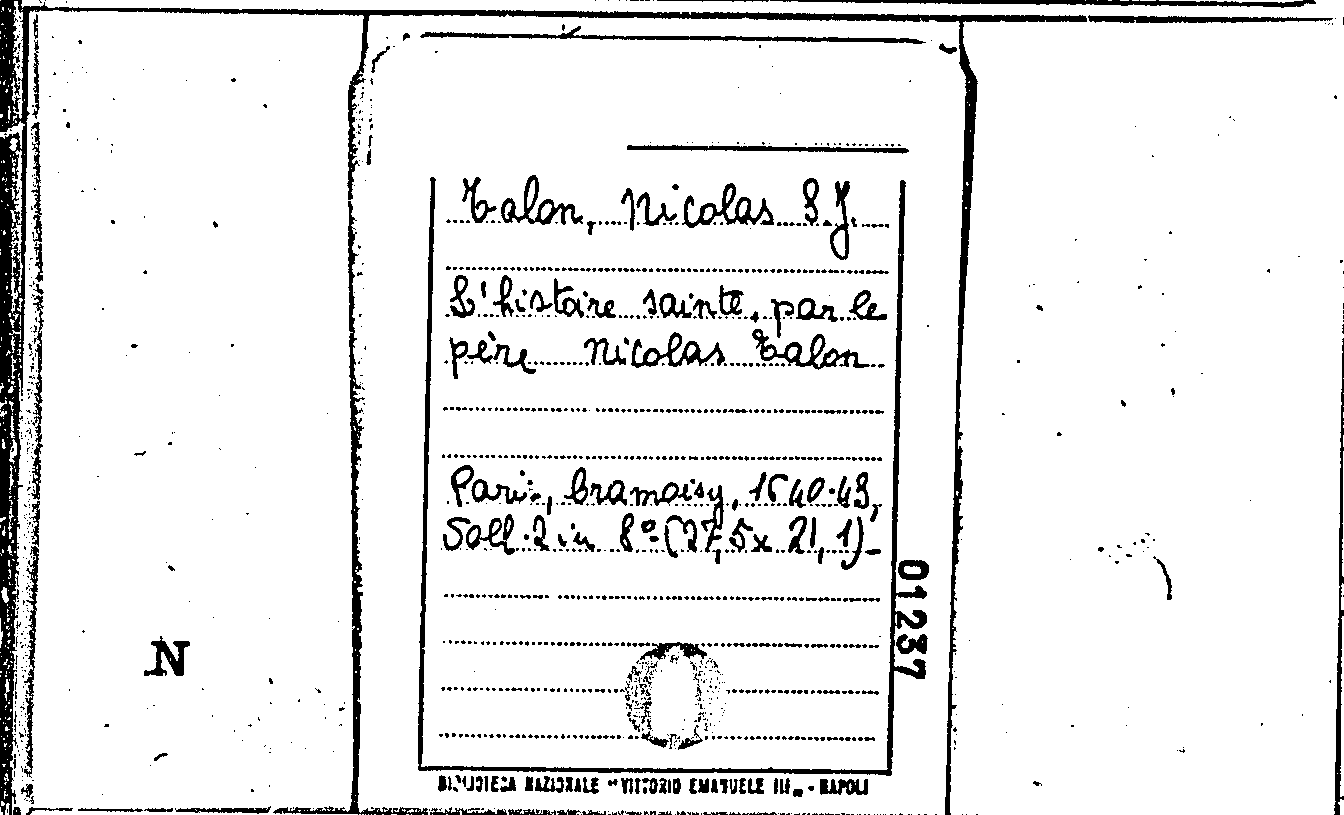 Talon, Nicolas S.J.
L'histoire sainte, par le
père Nicolas Talon
Paris, Cramoisy, 1640-43,
Voll. 2 in 8° (27,5 x 21,1)-
01237
N
BIBLIOTECA NAZIONALE "VITTORIO EMANUELE III" - NAPOLI